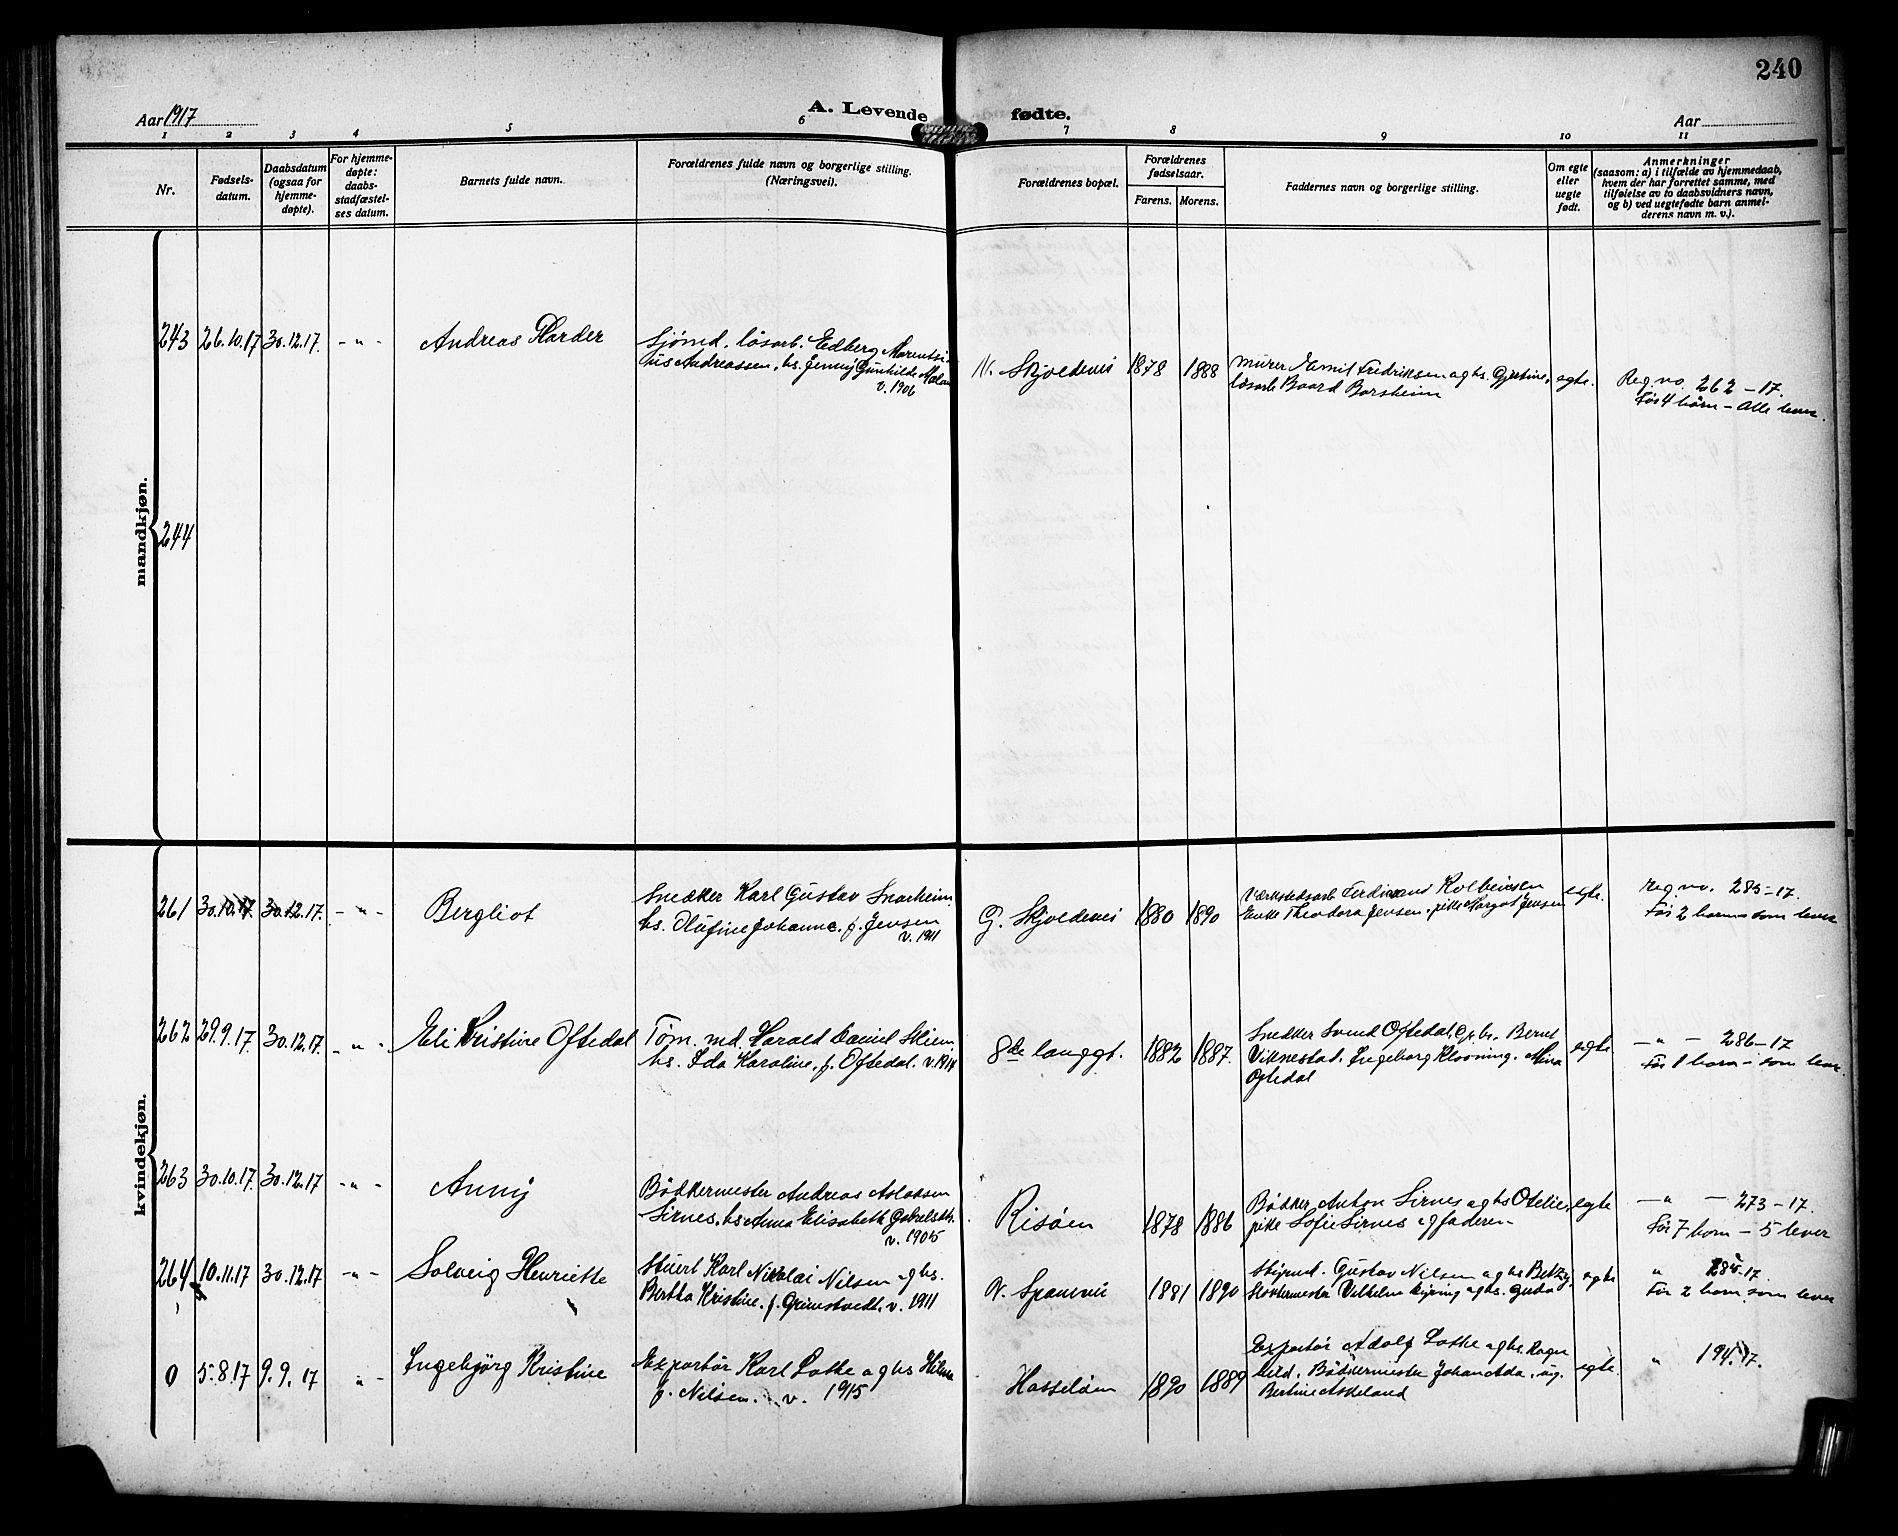 240
Aar 1917
A. Levende fødte.
Aar
1 2 3 4 5 6 7 8 9 10 11
Nr.
Fødsels-
datum.
Daabsdatum
(ogsaa for
hjemme-
døpte).
For hjemme-
døpte:
daabs-
stadfæstel-
ses datum.
Barnets fulde navn.
Forældrenes fulde navn og borgerlige stilling.
(Næringsvei).
Forældrenes bopæl.
Forældrenes
fødselsaar.
Farens. Morens.
Faddernes navn og borgerlige stilling.
Om egte
eller
uegte
født.
Anmerkninger
(saasom: a) i tilfælde av hjemmedaab,
hvem der har forrettet samme, med
tilføielse av to daabsvidners navn,
og b) ved uegtefødte barn anmel-
derens navn m. v.).
mandkjøn.
243 26.10.17 30.12.17. - " - Andreas Harder
Sjömd. lösarb. Edberg Marentsi-
us Andreassen, hs. Jenny Gunhilde
v. 1906
N. Skjoldevei 1878 1888
murer Emil Fredriksen og hs. Gjertine,
løsarb Baard Borsheim
egte.
Reg. no. 262 - 17.
Før 4 börn - Alle lever.
244
kvindekjøn.
261 30.10.17. 30.12.17. - " - Bergliot
Snedker Karl Gustav Snarheim
hs. Olufine Johanne, f. Jensen
v. 1911
G. Skjoldevei 1880 1890
Værkstedsarb Ferdinand Kolbeinsen
Enke Theodora Jensen, pike Margot Jensen
egte.
reg. no. 285 - 17.
Før 2 barn som lever
262 29.9.17. 30.12.17. - " - Eli Kristine Oftedal
Töm. md. Harald Daniel Skiem
hs. Ida Karoline, f. Oftedal. v. 1914
8de langgt. 1882 1887.
Snedker Svend Oftedal, og hs. Bernt
Viknestad. Ingeborg Klovning. Mina
Oftedal
egte
- " - 286 - 17
Før 1 barn - som lever
263 30.10.17. 30.12.17 - " - Anny
Bödkermester Andreas Aslaksen
Sirnes, hs Anna Elisabeth Gabrielsdtr.
v. 1905
Risöen 1878 1886
Bödker Anton Sirnes og hs Otelie,
pike Sofie Sirnes og faderen
egte
- " - 273 - 17.
Før 7 barn - 5 lever
264 10.11.17 30.12.17 - " - Solveig Henriette
Stuert Karl Nikolai Nilsen og hs.
Bertha Kristine, f. Grimstvedt. v. 1911
N. Spanevei 1881 1890
Gustav Nilsen og hs Betzy,
Vilhelm og hs. Guda
egte
" 285-17.
Før 2 barn som lever
0 5.8.17 9.9.17 " - Ingebjörg Kristine
Exportör Karl Lothe og hs Hilma
f. Nilsen. v. 1915
Hasselöen 1890 1889
Exportör Adolf Lothe og hs. Ragn
hild. Bödkermester Johan Ada.
Bertine Askeland
egte.
" 194-17.